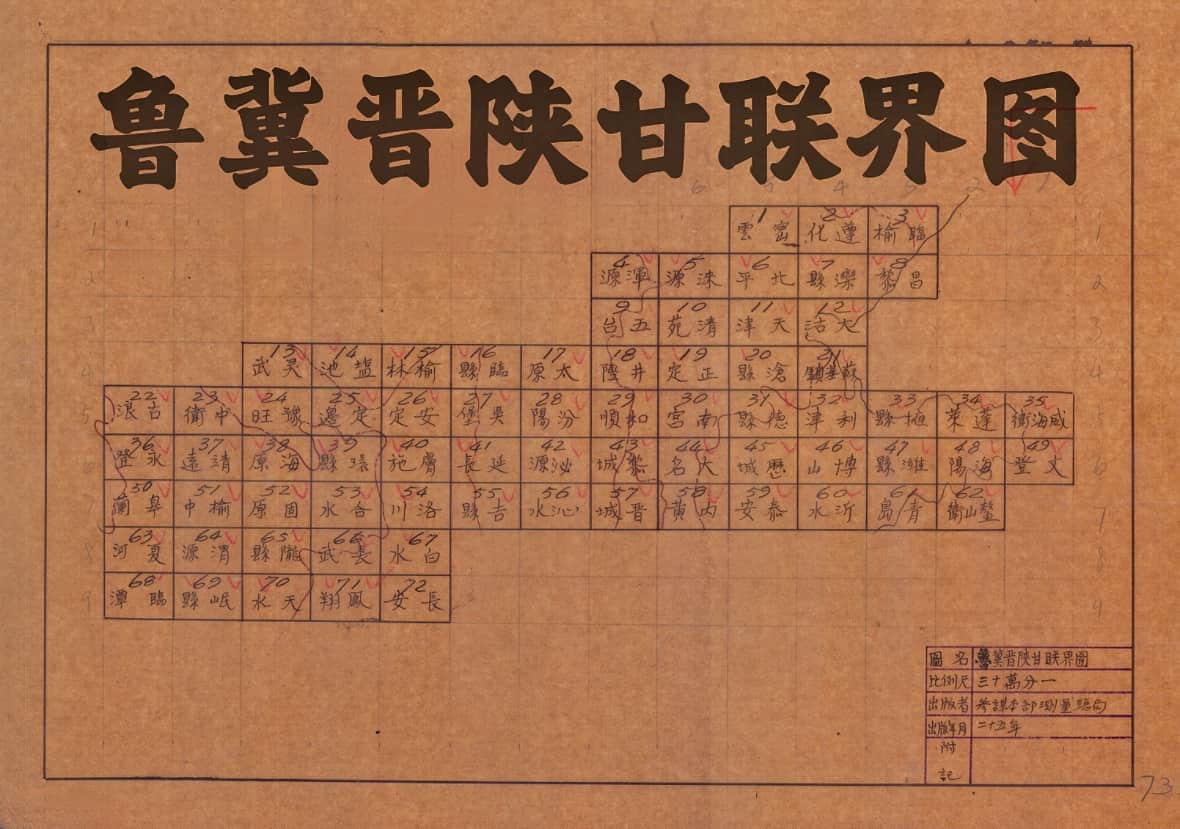 鲁冀晋陕甘联界图
6 5 4 3 2 1
1 雲密 2 化遵 3 榆臨
4 源渾 5 源淶 6 平北 7 縣灤 8 黎昌
9 台五 10 苑清 11 津天 12 沽大
13 武昊 14 池塩 15 林榆 16 縣臨 17 原太 18 陘井 19 定正 20 縣滄 21
22 浪古 23 衛中 24 旺豫 25 邊定 26 定安 27 堡吳 28 陽汾 29 順和 30 宮南 31 縣德 32 津利 33 縣掖 34 萊蓬 35 衛海威
36 登永 37 遠靖 38 原海 39 縣環 40 施膚 41 長延 42 源沁 43 城黎 44 名大 45 城歷 46 山博 47 縣濰 48 陽海 49 登文
50 蘭皋 51 中榆 52 原固 53 水合 54 川洛 55 縣吉 56 水沁 57 城晋 58 黃内 59 安泰 60 水沂 61 島青 62 衛山鰲
63 河夏 64 源渭 65 縣隴 66 武長 67 水白
68 潭臨 69 縣岷 70 水天 71 翔鳳 72 安長
1
2
3
4
5
6
7
8
9
圖名 魯冀晋陕甘联界图
比例尺 三十萬分一
出版者 参謀本部測量總局
出版年月 二十五年
附記
73